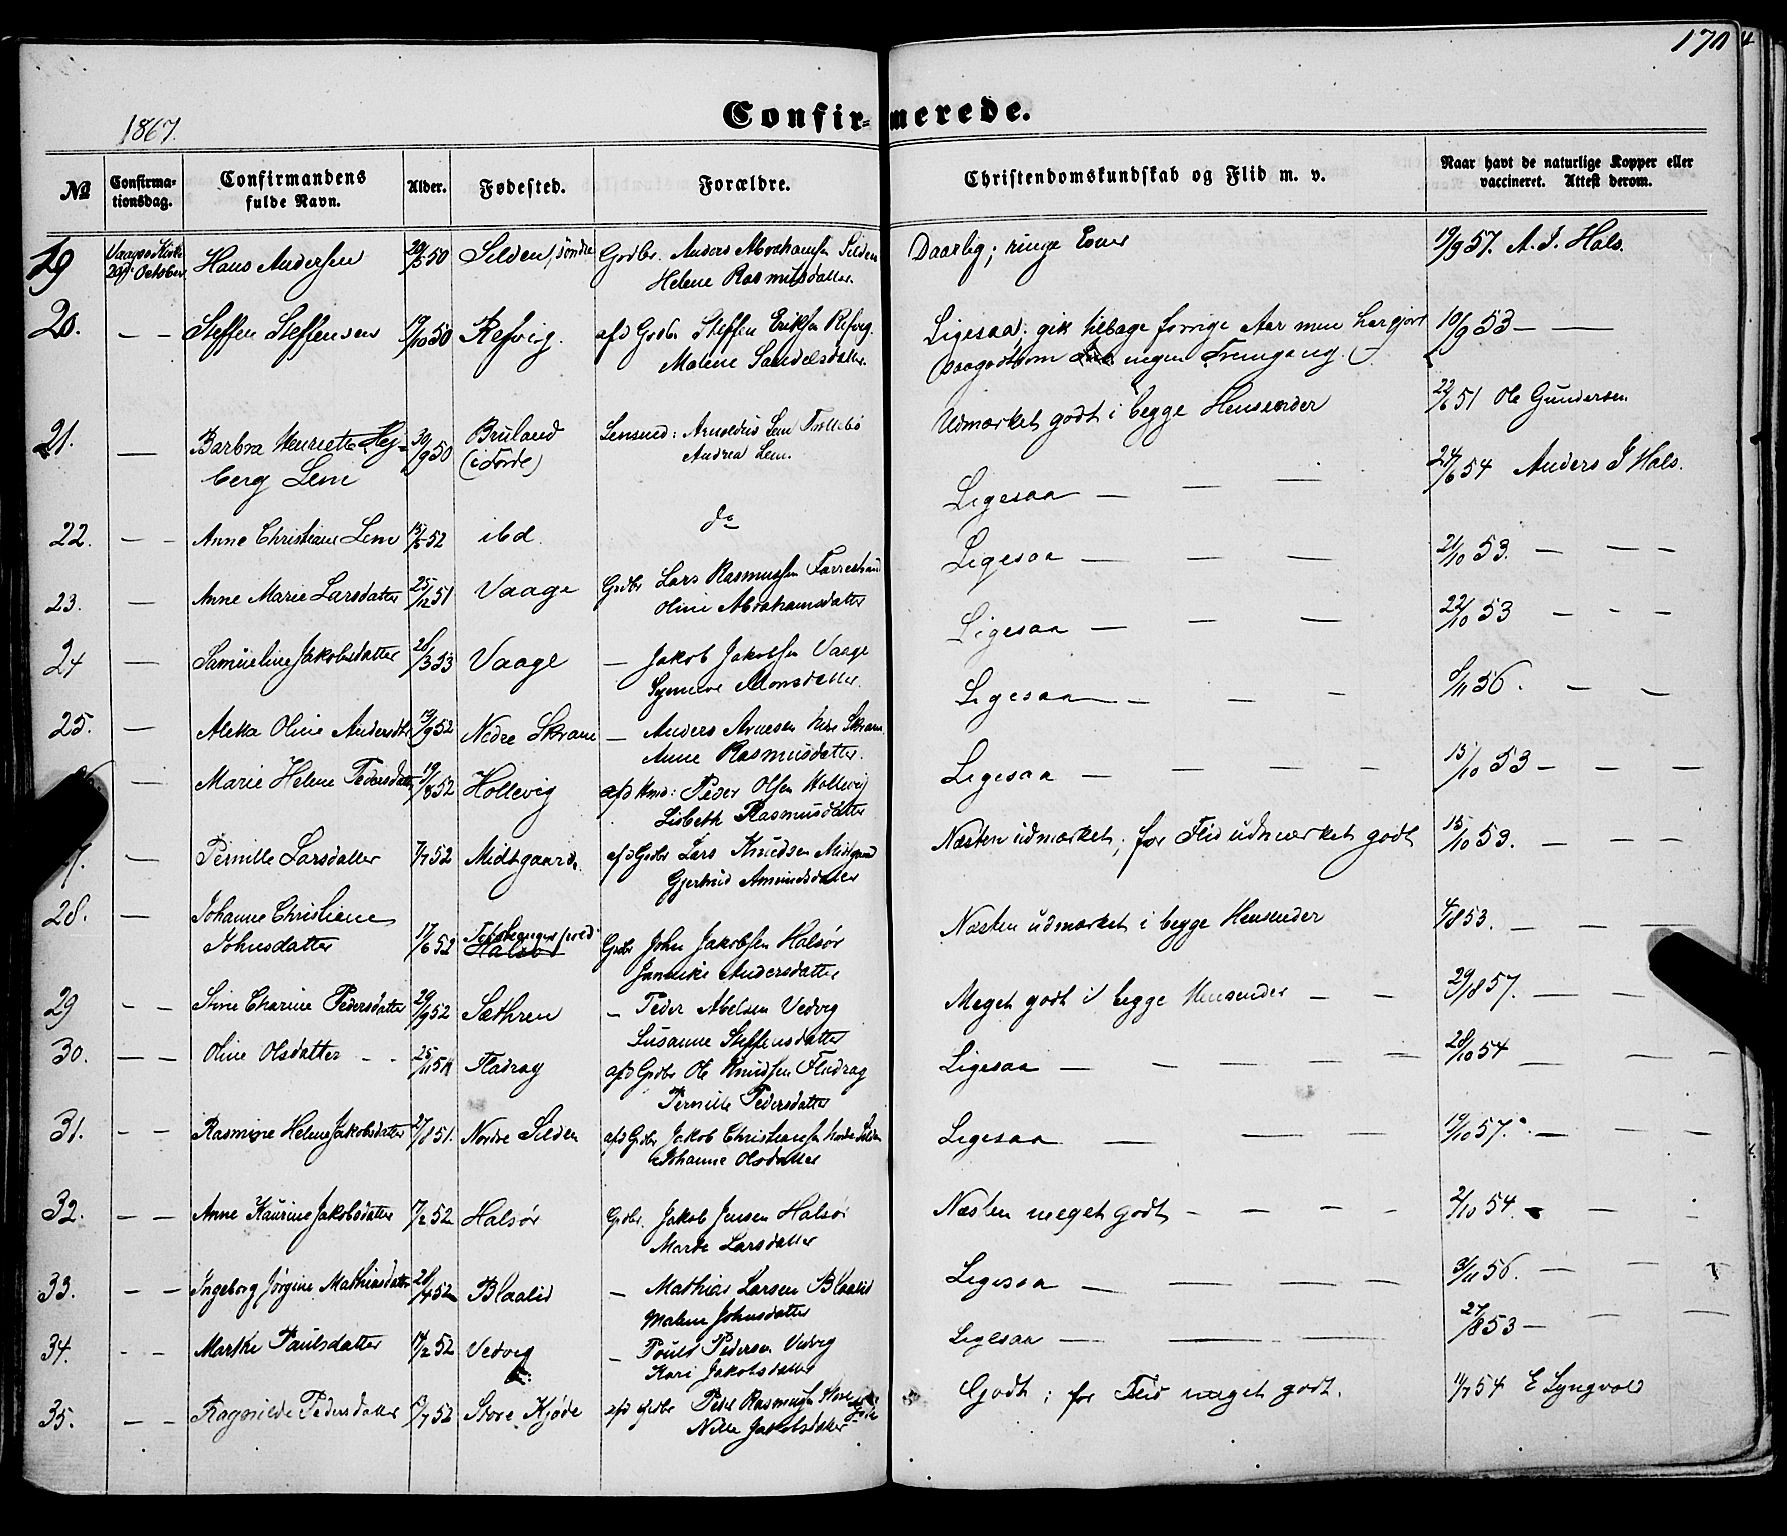 170
1867.
Confirmerede.
№ Confirma-tionsdag. Confirmandens fulde Navn. Alder. Fødested. Forældre. Christendomskundskab og Flid m. v. Naar havt de naturlige Kopper eller vaccineret. Attest derom.
19 Vaagsø Kirke Hans Andersen 50 Silden, søndre Grdbr. Anders Abrahamsen Silden Daarlig; ringe Evner 19/9 57. A. J. Hals.
October Helene Rasmusdatter
20. — — Steffen Steffensen 19/10 50 Refvig. afd Grdbr Steffen Eriksen Refvig. Ligesaa; gik tilbage forrige Aar men har gjort 10/9 53 — —
Malene Sandelsdatter. saagodtsom ingen Fremgang.
21. — Barbra Henriette Hej- 30/9 50 Bruland Lensmd: Arnoldus Lem Udmærket godt i begge Henseender 22/6 51 Ole Gundersen
berg Lem (i Førde) Andrea Lem.
22. — — Anne Christiane Lem 52 ibd. do Ligesaa — — — 24/6 54 Anders J Hals.
23. — Anne Marie Larsdatter 25/12 51 Vaage Grdbr Lars Rasmussen Ligesaa — — — 21/10 53. — — —
Oline Abrahamsdatter
24 — Samueline Jakobsdatter 53 Vaage — Jakob Jakobsen Vaage Ligesaa — — — 22/10 53 — — —
Synneve Monsdatter.
25. — Aletta Oline Andersdtr 52 Nedre Skram — Anders Arnesen Ligesaa — — — 6/11 56. — —
Anne Rasmusdatter.
— Marie Helene Pedersdatter 19/8 52 Hollevig afd Hmd: Peder Olsen Hollevig Ligesaa — — — — — 15/10 53 — — —
Lisbeth Rasmusdatter
— Pernille Larsdatter 7/7 52 Midtgaard. afd Grdbr Lars Knudsen Midtgaard Næsten udmærket; for Flid udmærket godt 15/10 53. — — —
Gjertrud Amundsdatter
28. — Johanne Christiane
Johnsdatter 17/6 52 Halsør Grdbr John Jakobsen Halsør Næsten udmærket i begge Henseender 4/8 53. — — —
Jannike Andersdatter
29 — — Stine Charine Pedersdatter 29/9 52 Sæthren — Peder Abelsen Vedvig Meget godt i begge Henseender — — 29/8 57. — — —
Susanne Steffensdatter
30. — — Oline Olsdatter 25/11 51 Fladrag afd Grdbr Ole Knudsen Fludrag Ligesaa — — — — — 28/10 54 — — —
Pernille Pedersdatter
31. — — Rasmine Helene Jakobsdatter 27/8 51. Nordre Silden afd Grdbr Jakob Christiansen Nordre Silden Ligesaa — — — — 19/10 57. — — —
Johanne Olsdatter
32. — — Anne Kaurine Jakobsdatter 7/2 52 Halsør Grdbr. Jakob Jensen Halsør Næsten meget godt — — — — — 2/10 54. — —
Marte Larsdatter
33. — — Ingeborg Jørgine Mathiasdatter 28/4 52 Blaalid — Mathias Larsen Blaalid Ligesaa — — — — 3/11 56. — —
Malene Johnsdatter
34. — — Marthe Paulsdatter 14/2 52 Vedvig — Pouls Pedersen Vedvig Ligesaa — — — — 27/8 53 — — —
Kari Jakobsdatter
35. — — Ragnilde Pedersdatter 52 Store Kjøde afd Grdbr Peder Rasmussen Godt; for Flid meget godt. 11/7 54 E Lyngvold
Nille Jakobsdatter